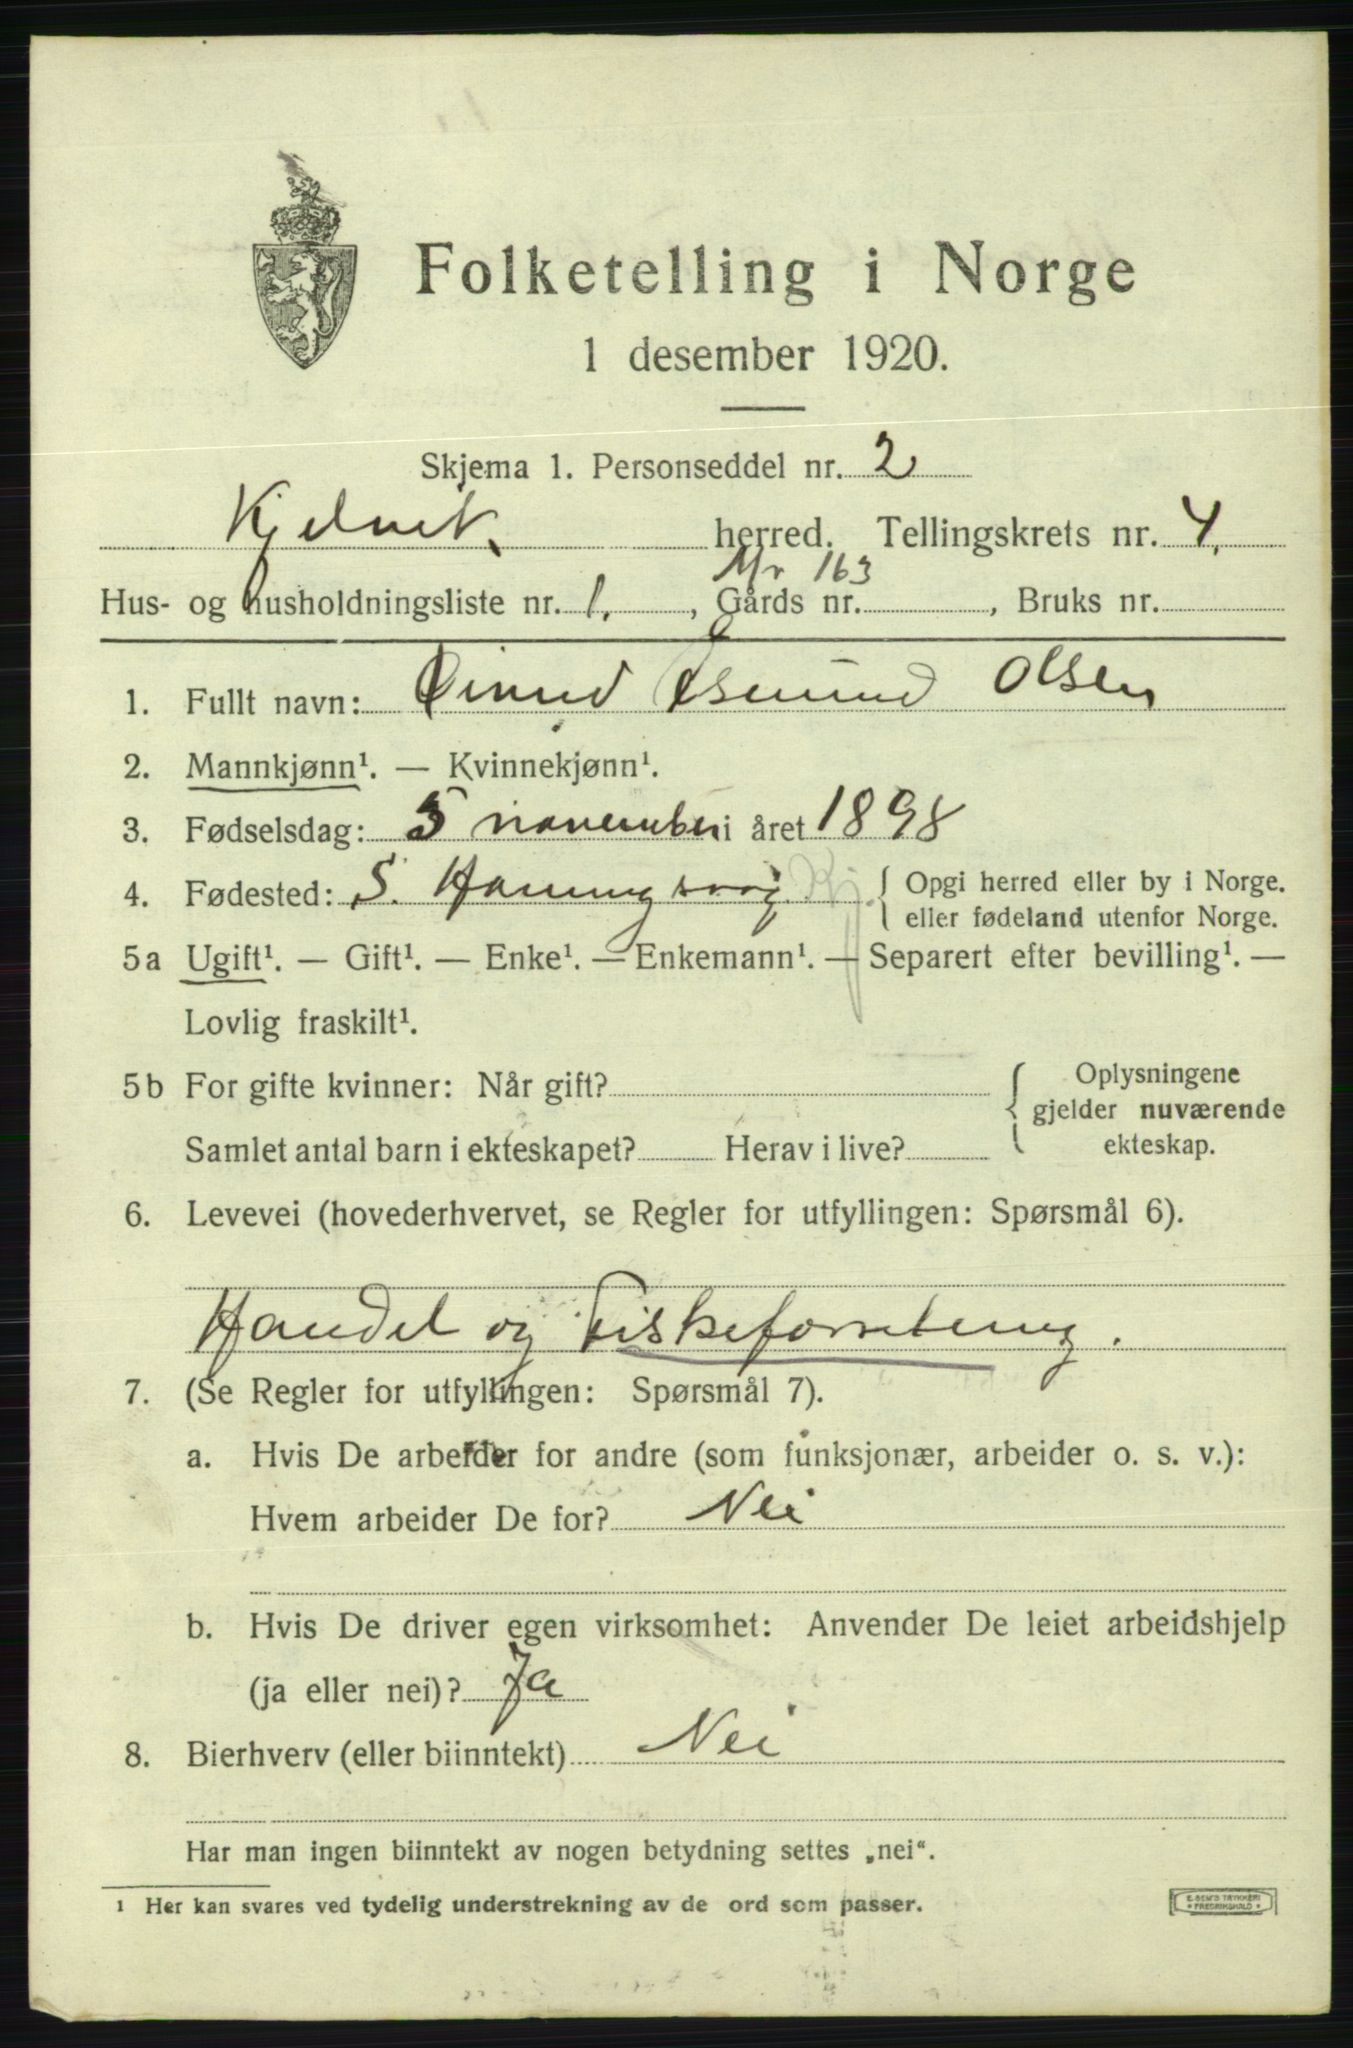 Folketelling i Norge
1 desember 1920.
Skjema 1. Personseddel nr. 2
Kjelvik. herred. Tellingskrets nr. 4.
Mr 163
Hus- og husholdningsliste nr. 1. , Gårds nr. , Bruks nr.
1. Fullt navn: Øivind Osmund Olsen
2. Mannkjønn¹. — Kvinnekjønn¹.
3. Fødselsdag: 5 november i året 1898
4. Fødested: S. Honningsvåg Kj. { Opgi herred eller by i Norge.
eller fødeland utenfor Norge.
5a Ugift¹. — Gift¹. — Enke¹. — Enkemann¹. — Separert efter bevilling¹. —
Lovlig fraskilt¹.
5b For gifte kvinner: Når gift? { Oplysningene
gjelder nuværende
Samlet antal barn i ekteskapet? Herav i live? ekteskap.
6. Levevei (hovederhvervet, se Regler for utfyllingen: Spørsmål 6).
Handel og Fiskeforretning.
7. (Se Regler for utfyllingen: Spørsmål 7).
a. Hvis De arbeider for andre (som funksjonær, arbeider o. s. v.):
Hvem arbeider De for? Nei
b. Hvis De driver egen virksomhet: Anvender De leiet arbeidshjelp
(ja eller nei)? Ja
8. Bierhverv (eller biinntekt) Nei
Har man ingen biinntekt av nogen betydning settes „nei“.
¹ Her kan svares ved tydelig understrekning av de ord som passer.
E. SEM'S TRYKKERI
FREDRIKSHALD